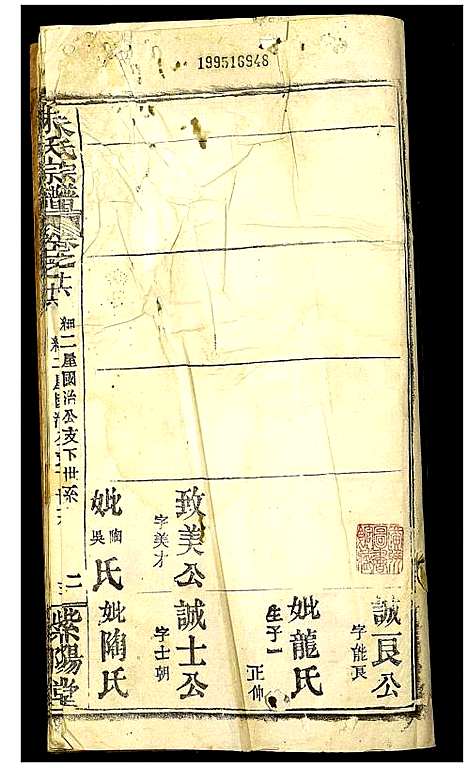 199516948
誠良公
字能良
妣龍氏
生子一
正伸
致美公
字美才
妣陶吳氏
誠士公
字士朝
妣陶氏
朱氏宗譜
卷之廿六
細二屋國治公支下世系
二
紫陽堂